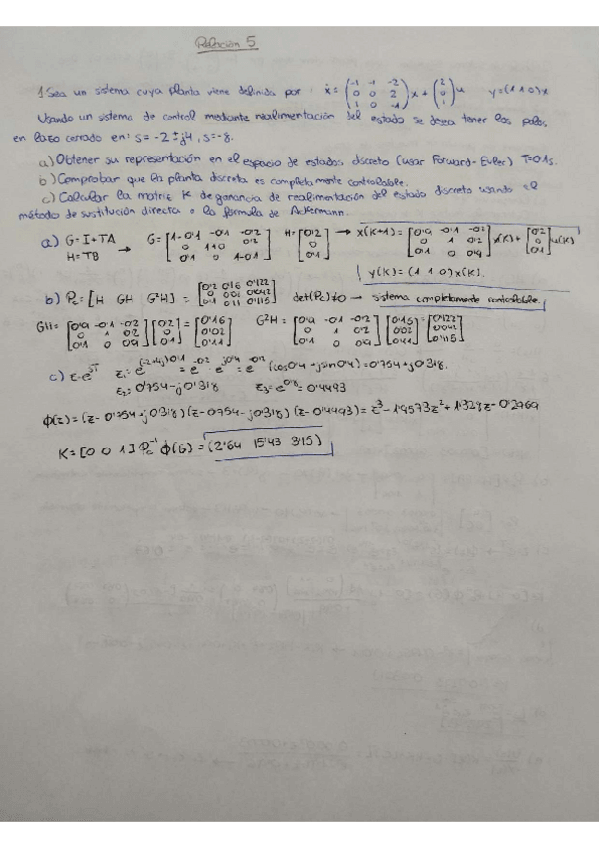 Relación 5
1 Sea un sistema cuya planta viene definida por: ẋ = (-1 -1 -2; 0 0 2; 1 0 -1) x + (2; 0; 1) u   y = (1 1 0) x
Usando un sistema de control mediante realimentación del estado se desea tener los polos,
en lazo cerrado en: s = -2 ± j4, s = -8.
a) Obtener su representación en el espacio de estados discreto (usar Forward-Euler) T=0'1s.
b) Comprobar que la planta discreta es completamente controlable.
c) Calcular la matriz K de ganancia de realimentación del estado discreto usando el
método de sustitución directa o la formula de Ackermann.
a) G = I + TA
H = TB → G = [1-0'1 -0'1 -0'2; 0 1+0 0'2; 0'1 0 1-0'1] H = [0'2; 0; 0'1] → x(K+1) = [0'9 -0'1 -0'2; 0 1 0'2; 0'1 0 0'9] x(K) + [0'2; 0; 0'1] u(K)
y(K) = (1 1 0) x(K).
b) Pc = [H GH G²H] = [0'2 0'16 0'122; 0 0'02 0'042; 0'1 0'11 0'115] det(Pc) ≠ 0 → sistema completamente controlable
GH = [0'9 -0'1 -0'2; 0 1 0'2; 0'1 0 0'9] [0'2; 0; 0'1] = [0'16; 0'02; 0'11] G²H = [0'9 -0'1 -0'2; 0 1 0'2; 0'1 0 0'9] [0'16; 0'02; 0'11] = [0'122; 0'042; 0'115]
c) z = e^sT z₁ = e^(-2+4j)0'1 = e^-0'2 · e^j0'4 = e^-0'2 (cos0'4 + jsin0'4) = 0'754 + j0'318.
z₂ = 0'754 - j0'318 z₃ = e^-0'8 = 0'4493
ϕ(z) = (z - 0'754 + j0'318) (z - 0'754 - j0'318) (z - 0'4493) = z³ - 1'9573z² + 1'329z - 0'2769
K = [0 0 1] Pc⁻¹ ϕ(G) = (2'64 15'43 3'15)